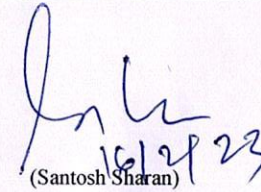 16/2/23
(Santosh Sharan)